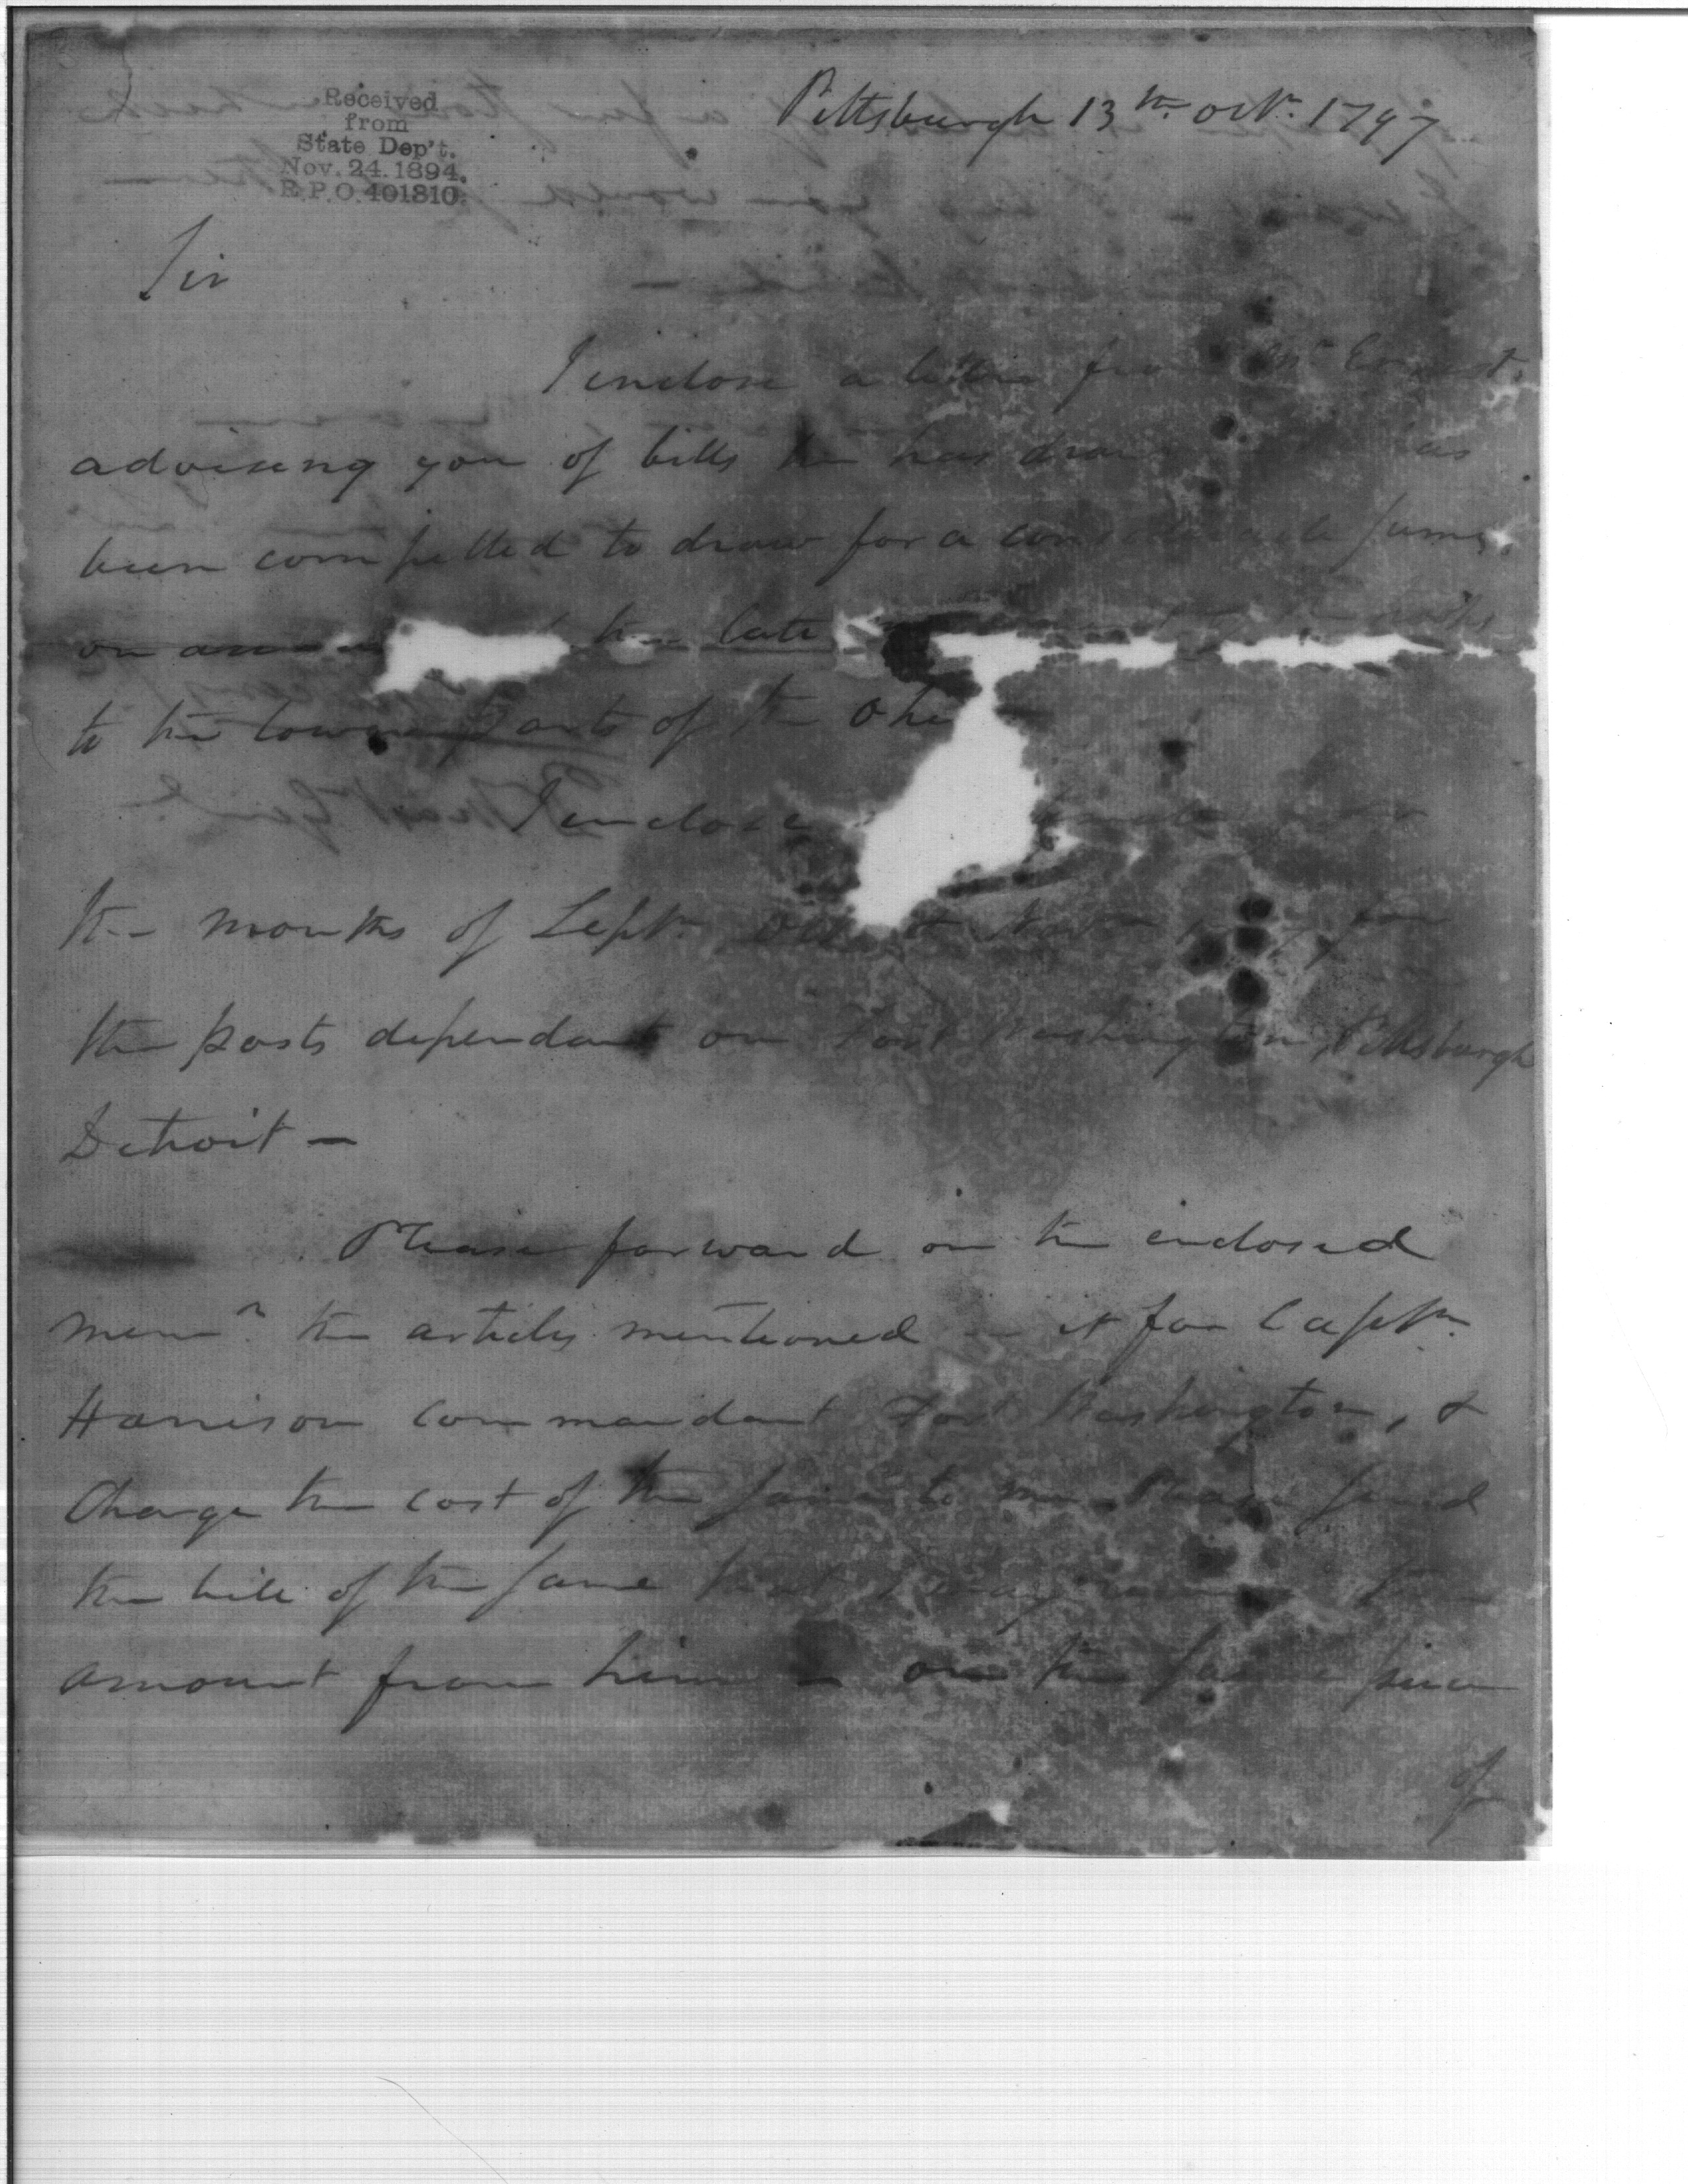 Received
from
State Dep't.
Nov. 24. 1894.
R.P.O. 401810.
Pittsburgh 13th. octr. 1797
Sir
I enclose a letter from Mr
advising you of bills he has drawn
been compelled to draw for a considerable sums.
on the late
to the lower parts of the
I enclose
the months of Septr.
the posts dependant on Fort Washington, Pittsburgh
Detroit —
Please forward on the enclosed
memo. the articles mentioned it for Captn.
Harrison commandant Fort Washington, &
Charge the cost of the same to me. Please send
the bill of the same that I may the
amount from him — on the same
of